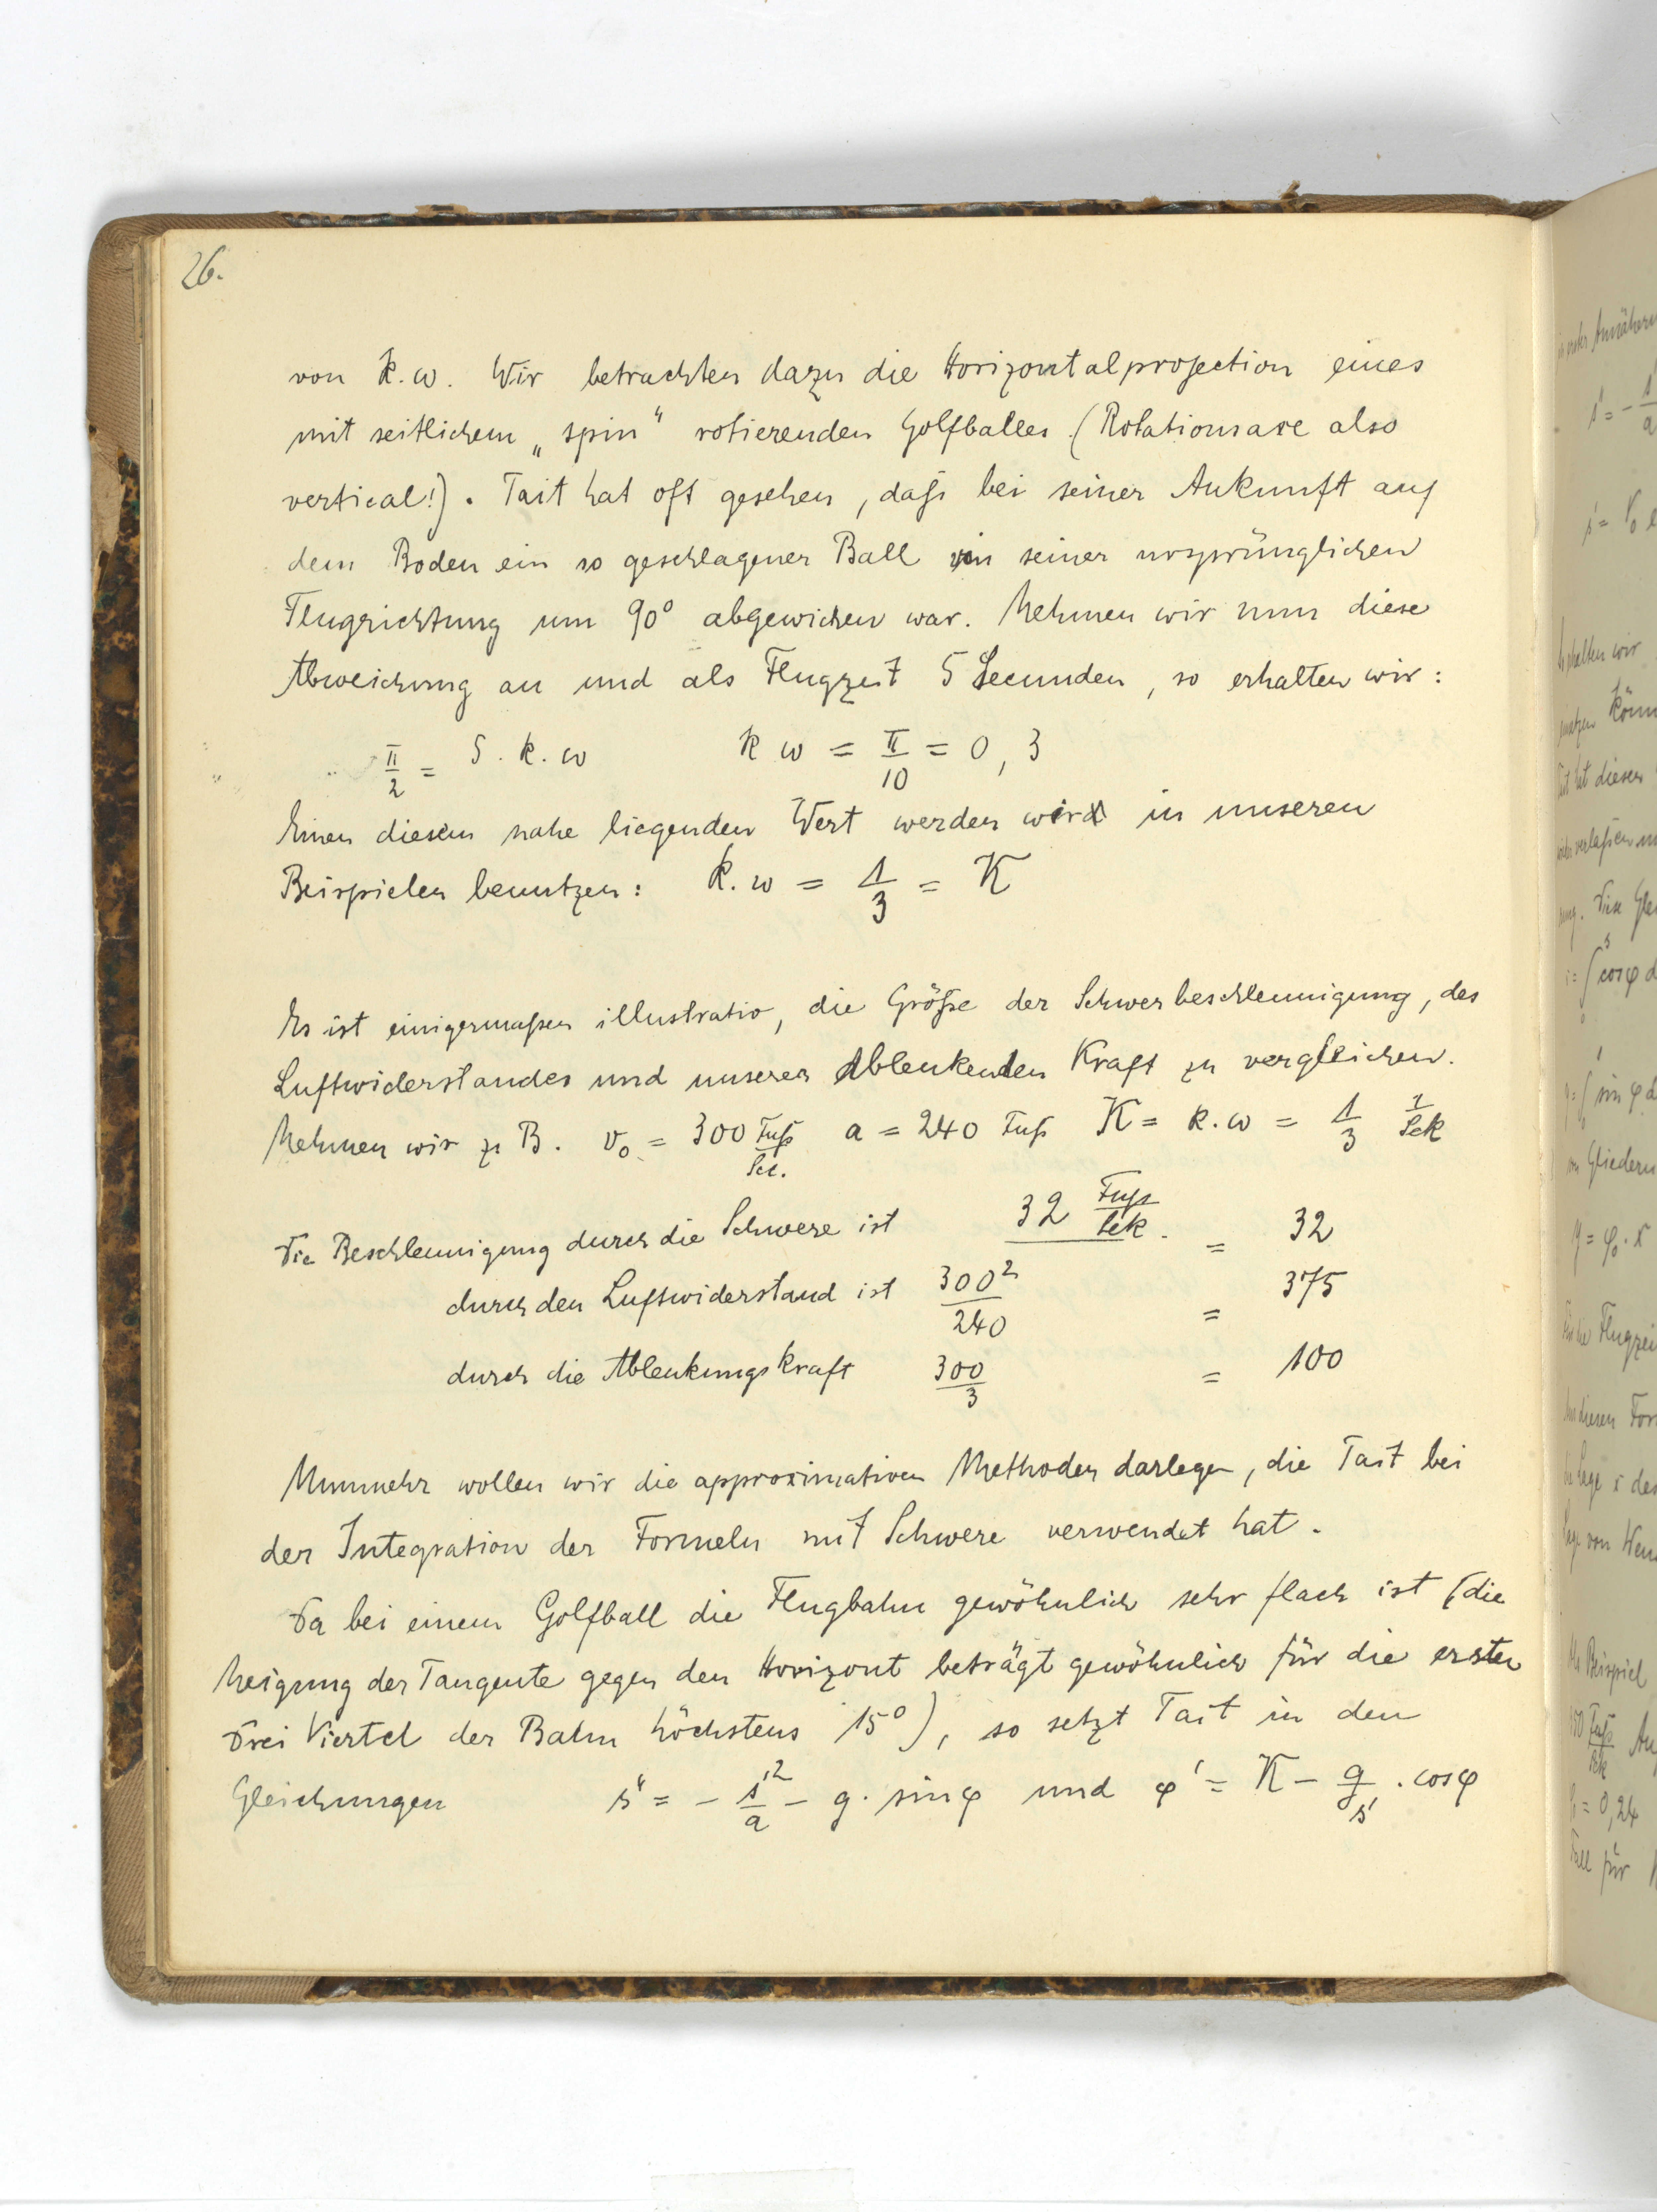 26.
von k.ω. Wir betrachten dazu die Horizontalprojection eines
mit seitlichem „spin“ rotierenden Golfballes (Rotationsaxe also
vertical!). Tait hat oft gesehen, daß bei seiner Ankunft auf
dem Boden ein so geschlagener Ball von seiner ursprünglichen
Flugrichtung um 90° abgewichen war. Nehmen wir nun diese
Abweichung an und als Flugzeit 5 Secunden, so erhalten wir:
π/2 = 5. k. ω k ω = π/10 = 0,3
Einen diesem nahe liegenden Wert werden wir in unseren
Beispielen benutzen: k.ω = 1/3 = K
Es ist einigermaßen illustrativ, die Größe der Schwerbeschleunigung, des
Luftwiderstandes und unserer Ablenkenden Kraft zu vergleichen.
Nehmen wir z B. v₀ = 300 Fuß/Sec. a = 240 Fuß K = k.ω = 1/3 1/Sek
Die Beschleunigung durch die Schwere ist 32 Fuß/Sek. = 32
durch den Luftwiderstand ist 300²/240 = 375
durch die Ablenkungskraft 300/3 = 100
Nunmehr wollen wir die approximativen Methoden darlegen, die Tait bei
der Integration der Formeln mit Schwere verwendet hat.
Da bei einem Golfball die Flugbahn gewöhnlich sehr flach ist (die
Neigung der Tangente gegen den Horizont beträgt gewöhnlich für die ersten
Drei Viertel der Bahn höchstens 15°), so setzt Tait in den
Gleichungen s'' = - s'²/a - g. sin φ und φ' = K - g/s' . cos φ